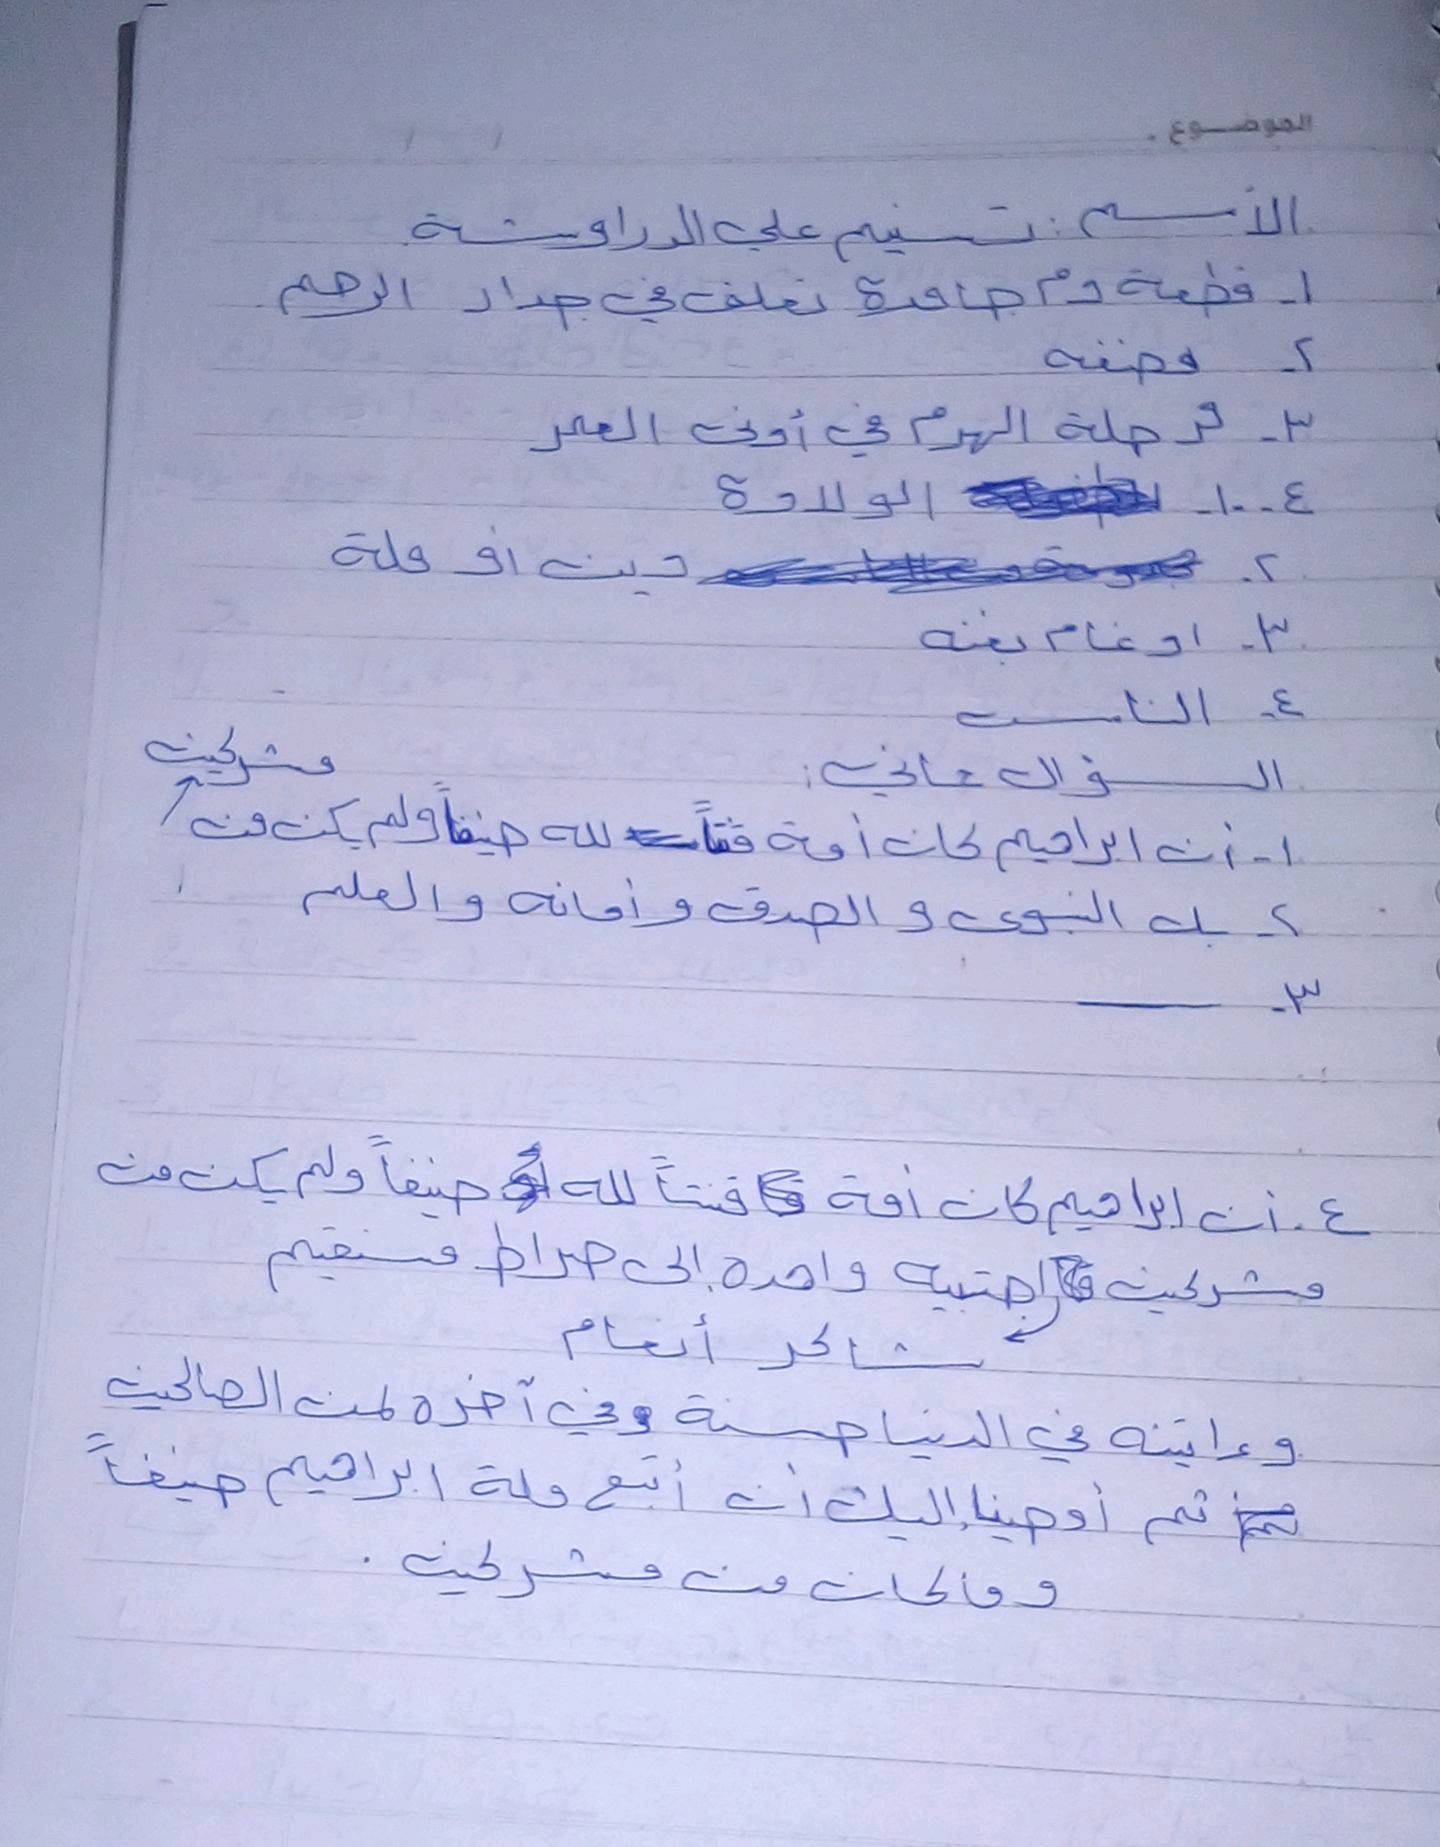 الموضوع .
الأسم : تسنيم علي الدراوشة
١- قطعة دم جامدة تعلف في جدار الرحم
٢- مضغه
٣- مرحلة الهرم في أوخى العمر
٤-١- الولادة
٢- دين او ملة
٣- ادغام بغنه
٤- الناس
السؤال ثاني :
١- أن ابراهيم كان أمة قنتاً لله حنيفاً ولم يكن من مشركين
٢- بل النبوى و الصدق و أمانه و العلم
٣- ــــ
٤- أن ابراهيم كان أمة قنتاً لله حنيفاً ولم يكن من
مشركين اجتبيه واهده إلى صراط مستقيم
شاكر أنعام
وءاتينه في الدنيا حسنة وفي آخره لمن الصالحين
ثم أوحينا إليك أن أتبع ملة ابراهيم حنيفاً
وماكان من مشركين .